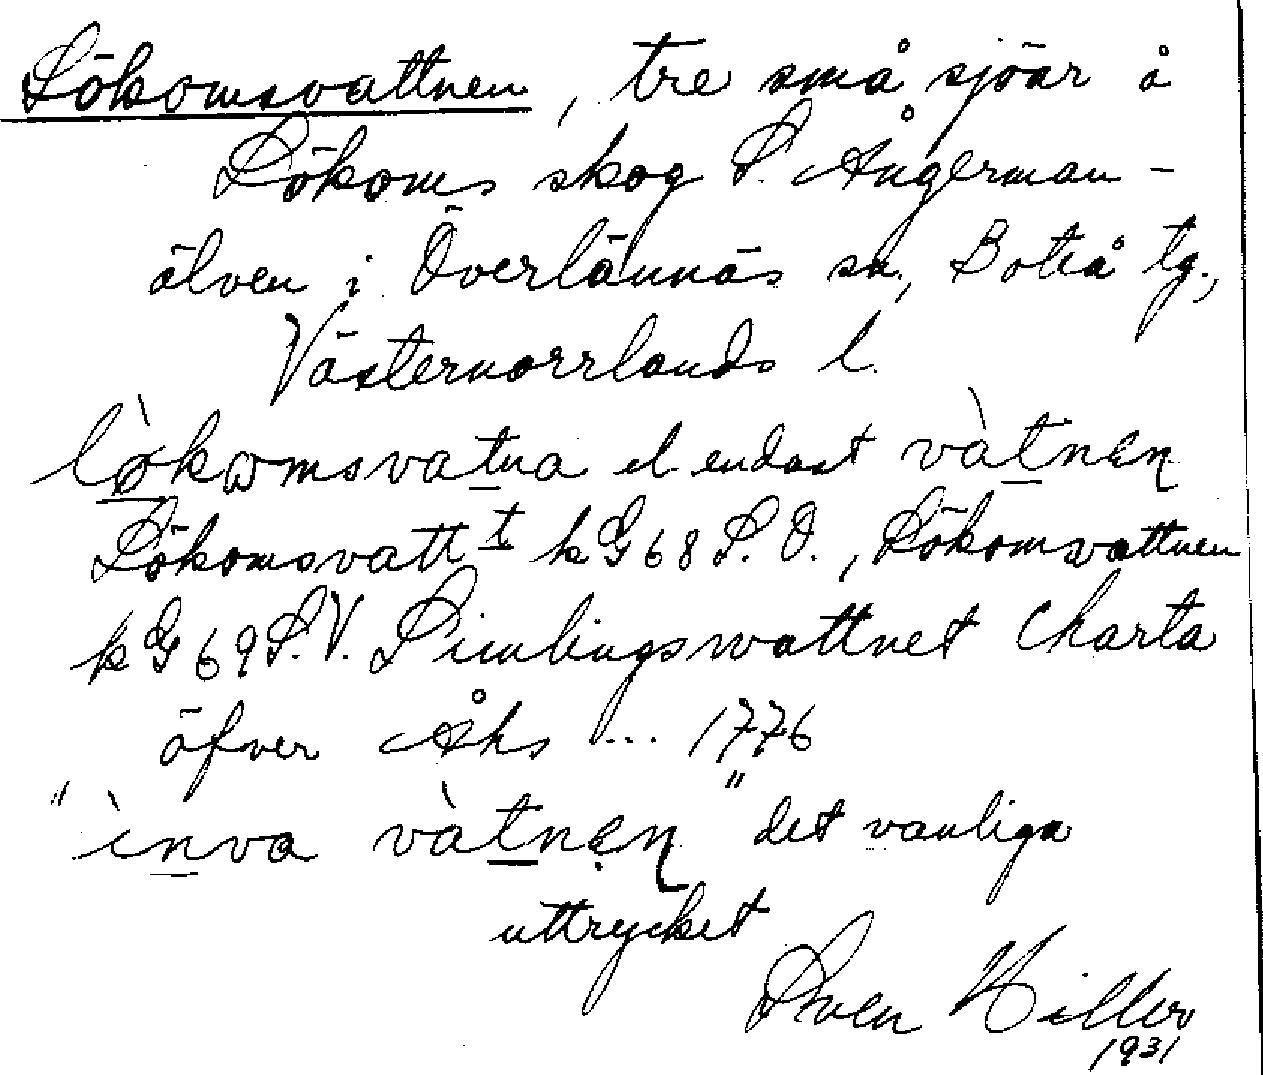 Lökomsvattnen, tre små sjöar å
Lökoms skog S. Ångerman-
älven i Överlännäs sn, Boteå tg.,
Västernorrlands l.
lòkomsvatna el endast vàtnen
Lökomsvatt ͭ kG 68 S.O., Lökomsvattnen
kG 69 S.V. Limlingswattnet Charta
öfver Åhs ... 1776
"ìnva vàtnen" det vanliga
uttrycket
Sven Hiller
1931